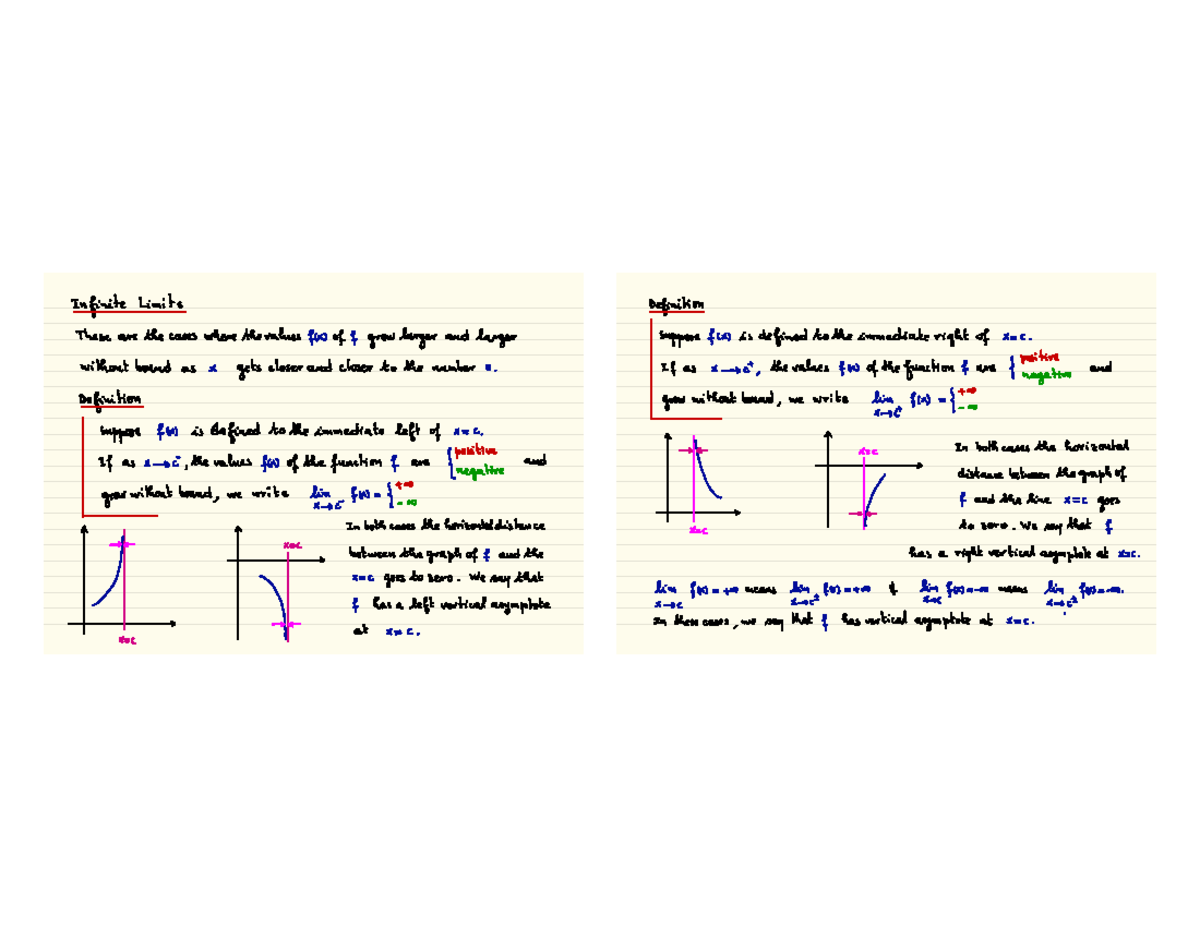 Infinite Limits
These are the cases where the values f(x) of f grow larger and larger
without bound as x gets closer and closer to the number c.
Definition
Suppose f(x) is defined to the immediate left of x=c.
If as x→c⁻, the values f(x) of the function f are { positive negative and
grow without bound, we write lim x→c⁻ f(x) = { +∞ -∞
In both cases the horizontal distance
between the graph of f and the
x=c goes to zero. We say that
f has a left vertical asymptote
at x=c.
x=c
x=c
Definition
Suppose f(x) is defined to the immediate right of x=c.
If as x→c⁺, the values f(x) of the function f are { positive negative and
grow without bound, we write lim x→c⁺ f(x) = { +∞ -∞
In both cases the horizontal
distance between the graph of
f and the line x=c goes
to zero. We say that f
has a right vertical asymptote at x=c.
x=c
x=c
lim x→c f(x)=+∞ means lim x→c± f(x)=+∞ & lim x→c f(x)=-∞ means lim x→c± f(x)=-∞.
In these cases, we say that f has vertical asymptote at x=c.